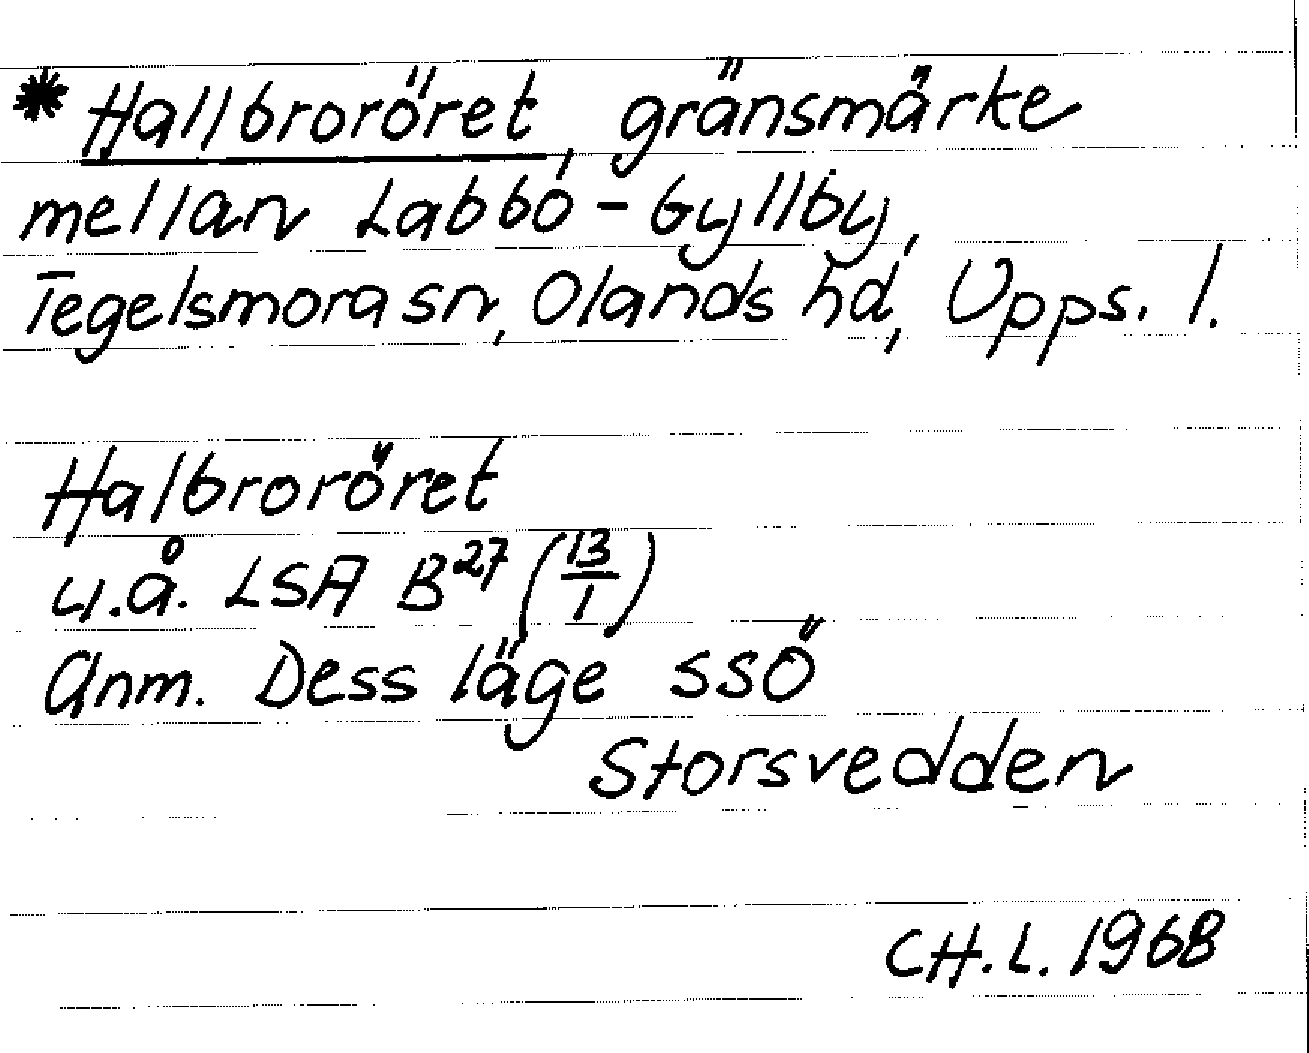 * Hallbroröret, gränsmärke
mellan Labbo - Gyllby,
Tegelsmora sn, Olands hd, Upps. l.
Halbroröret
u.å. LSA B27 (13/1)
Anm. Dess läge SSÖ
Storsvedden
CH.L. 1968